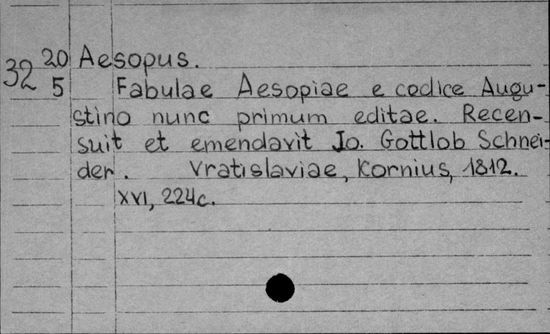 20 Aesopus.
32 5 Fabulae Aesopiae e codice Augu-
stino nunc primum editae. Recen-
suit et emendavit Jo. Gottlob Schnei-
der. Vratislaviae, Kornius, 1812.
XVI, 224c.